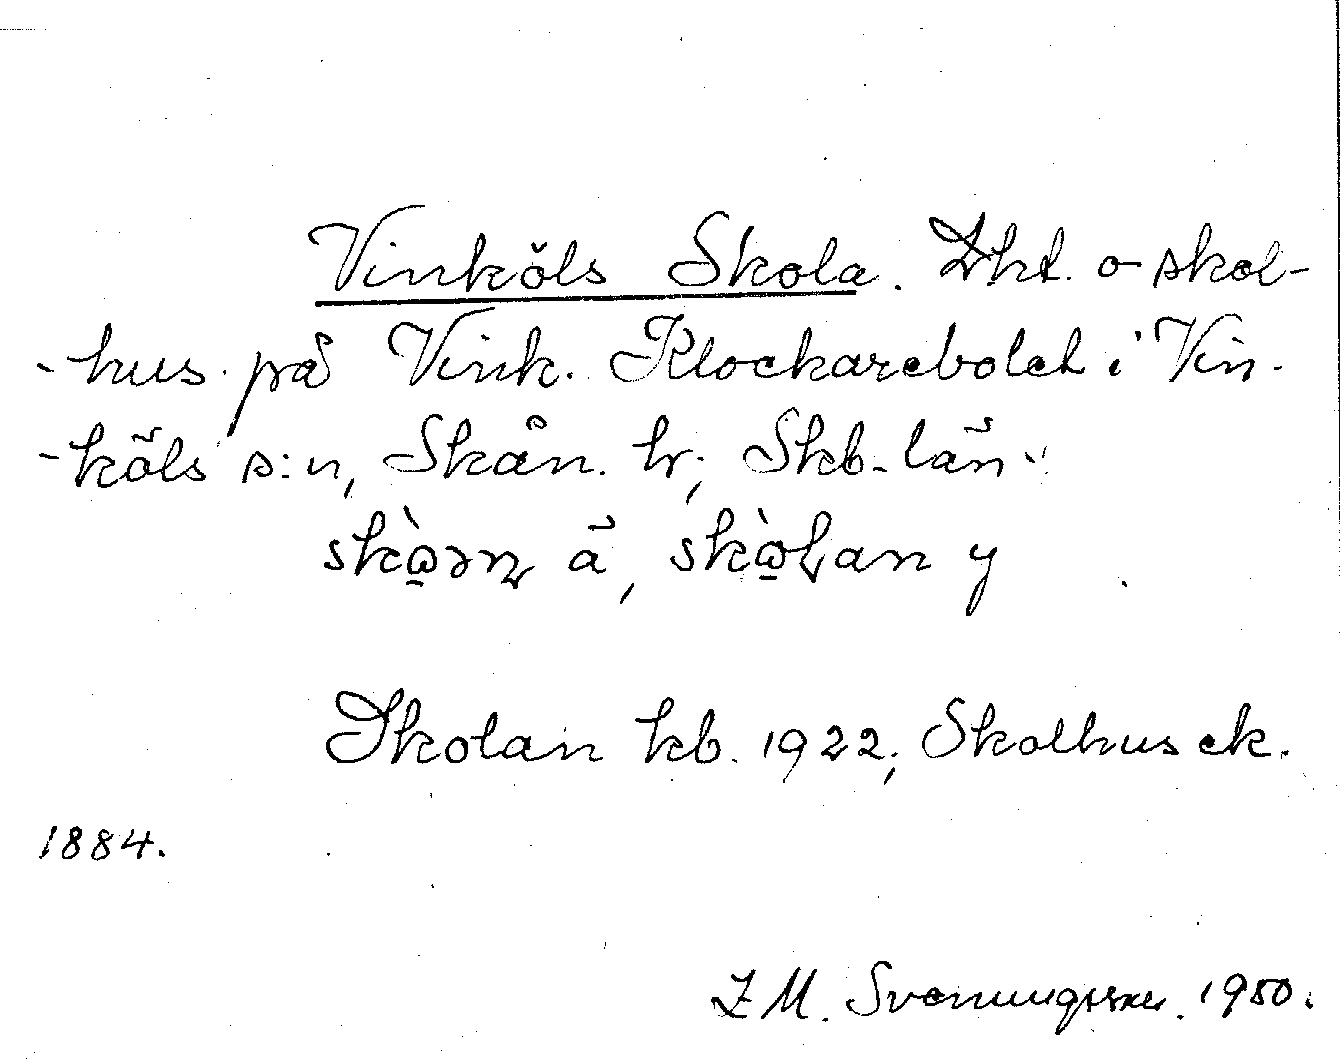 Vinköls Skola. Lht. o skol-
-hus på Vink. Klockarebolet i Vin-
-köls s:n, Skån. hr, Skb. län.
skò̱ən ä, skò̱lan y
Skolan kb. 1922, Skolhus ek.
1884.
Z M. Svenungsson. 1950.